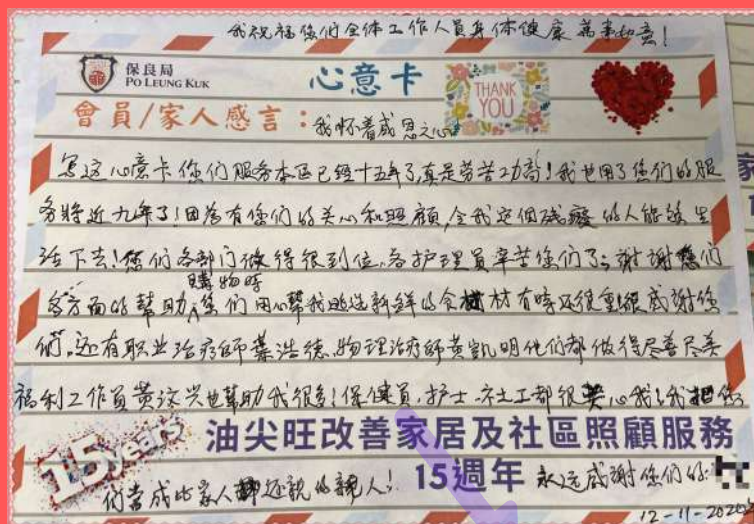 我祝福您们全体工作人员身体健康萬事如意!
保良局
PO LEUNG KUK
心意卡
THANK YOU
會員/家人感言：我怀着感恩之心
写这心意卡您们服务本区已经十五年了,真是劳苦功高!我也用了您们的服
务将近九年了!因为有您们的关心和照顾,令我这個残癈的人能够生
活下去!您们各部门做得很到位,各护理員辛苦您们了,谢谢您们
購物時
各方面的幫助,您们用心幫我挑选新鲜的食材有時还很重,很感谢您
们,还有职业治疗師葉浩德,物理治疗師黄凯明他们都做得尽善尽美
福利工作員黄汶兴也幫助我很多!保健員,护士,社工都很关心我!我把您
15 years
油尖旺改善家居及社區照顧服務
15週年
们當成比家人还親的親人!
永远感谢您们的
12-11-2020